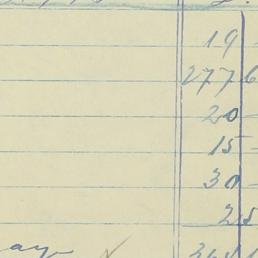 19 -
277 6
20 -
15 -
30 -
25
ay